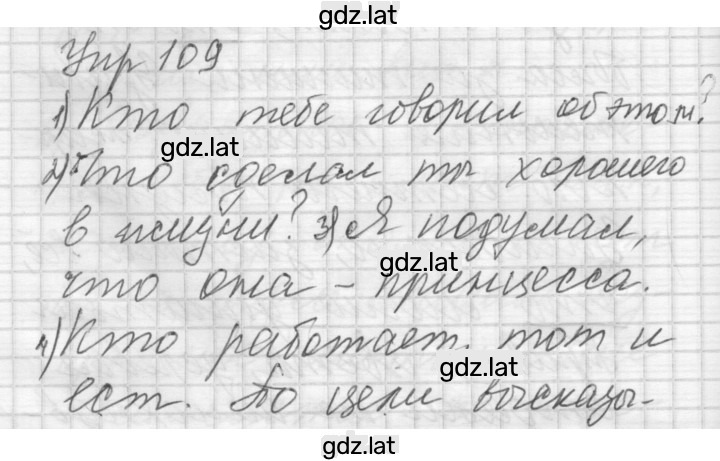 gdz.lat
Упр 109
1) Кто тебе говорил об этом?
gdz.lat
2) Что сделал ты хорошего
в жизни? 3) Я подумал,
gdz.lat
что она - принцесса.
4) Кто работает. тот и
gdz.lat
ест. По цели высказы-
gdz.lat